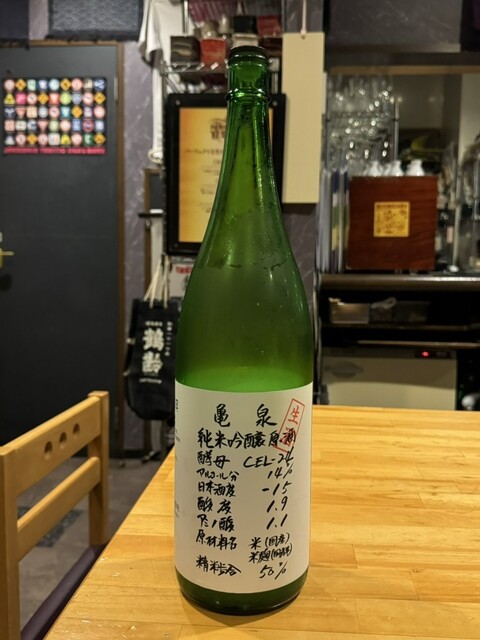 亀泉
生酒
純米吟醸原酒
酵母 CEL-24
アルコール分 14%
日本酒度 -15
酸度 1.9
アミノ酸 1.1
原材料名 米(国産)
米麹(国産米)
精米歩合 50%
鶴齢